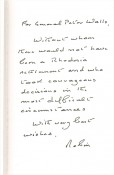 For General Peter Walls,
Without whom
there would not have
been a Rhodesia
settlement and who
took courageous
decisions in the
most difficult
circumstances
With very best
wishes,
Robin